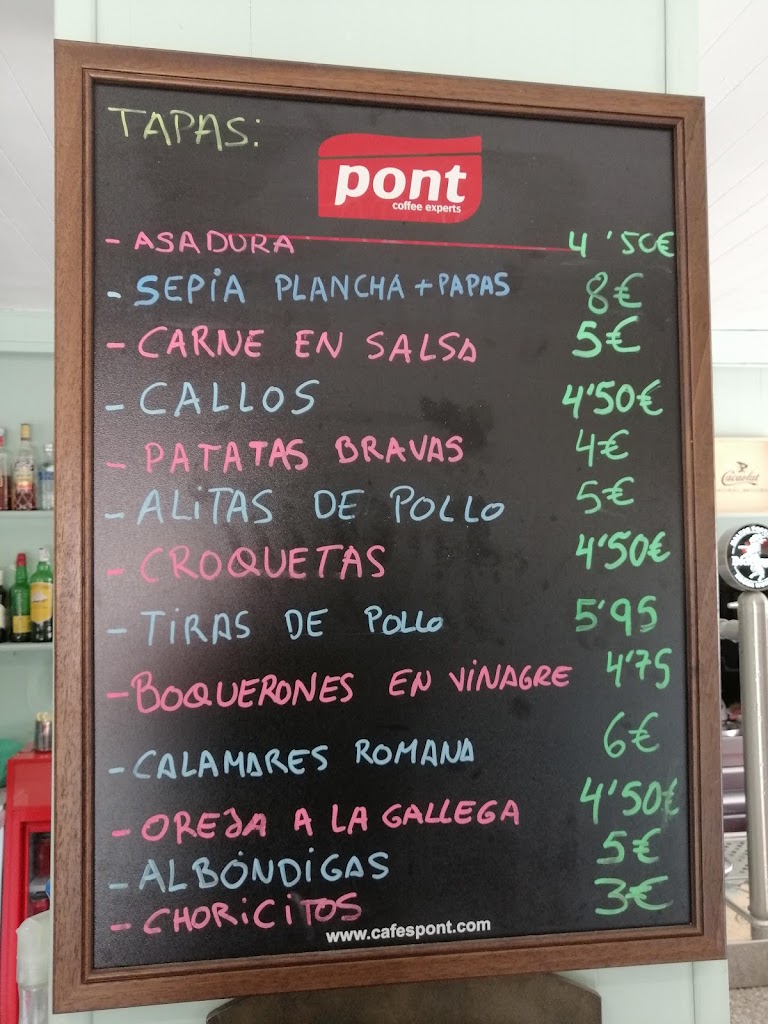 TAPAS:
pont
coffee experts
- ASADURA 4'50€
- SEPIA PLANCHA + PAPAS 8€
- CARNE EN SALSA 5€
- CALLOS 4'50€
- PATATAS BRAVAS 4€
- ALITAS DE POLLO 5€
- CROQUETAS 4'50€
- TIRAS DE POLLO 5'95
- BOQUERONES EN VINAGRE 4'75
- CALAMARES ROMANA 6€
- OREJA A LA GALLEGA 4'50€
- ALBÓNDIGAS 5€
- CHORICITOS 3€
www.cafespont.com
Cacaolat